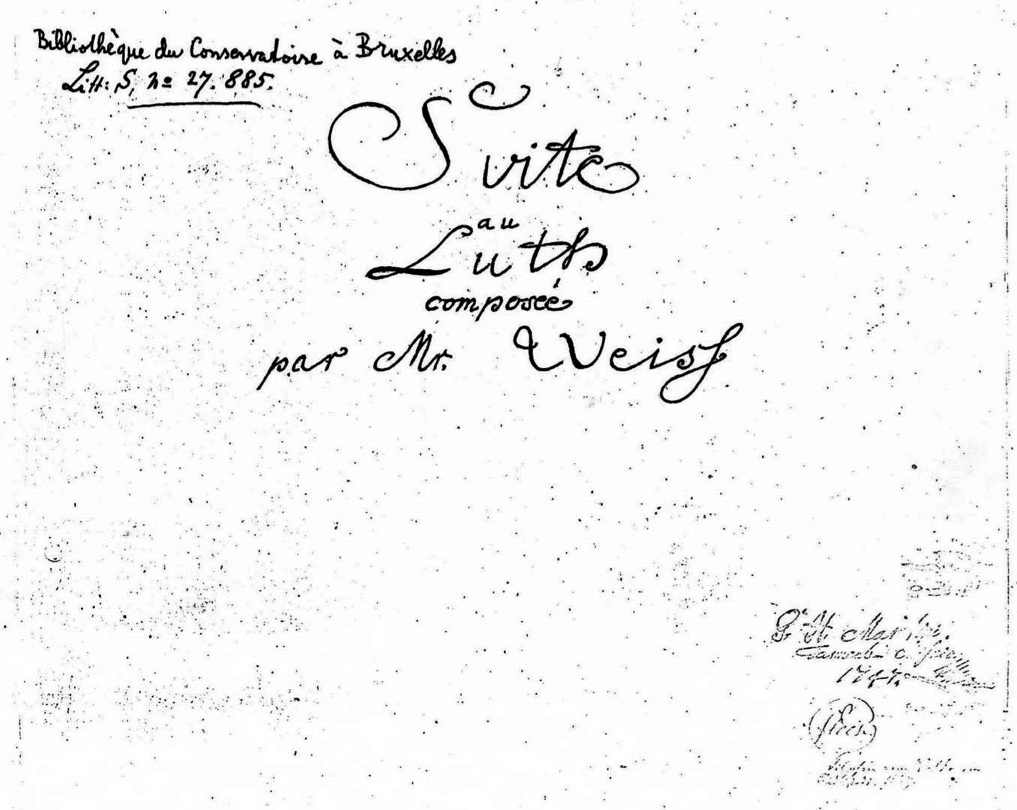 Bibliothèque du Conservatoire à Bruxelles
Litt: S, nº 27.885.
Suite
au
Luth
composeé
par Mr. Weiss
1747.